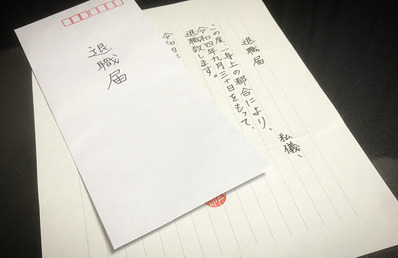 退職届
退職届
私儀、
この度、一身上の都合により、
令和四年九月三十日をもって、
退職致します。
令和